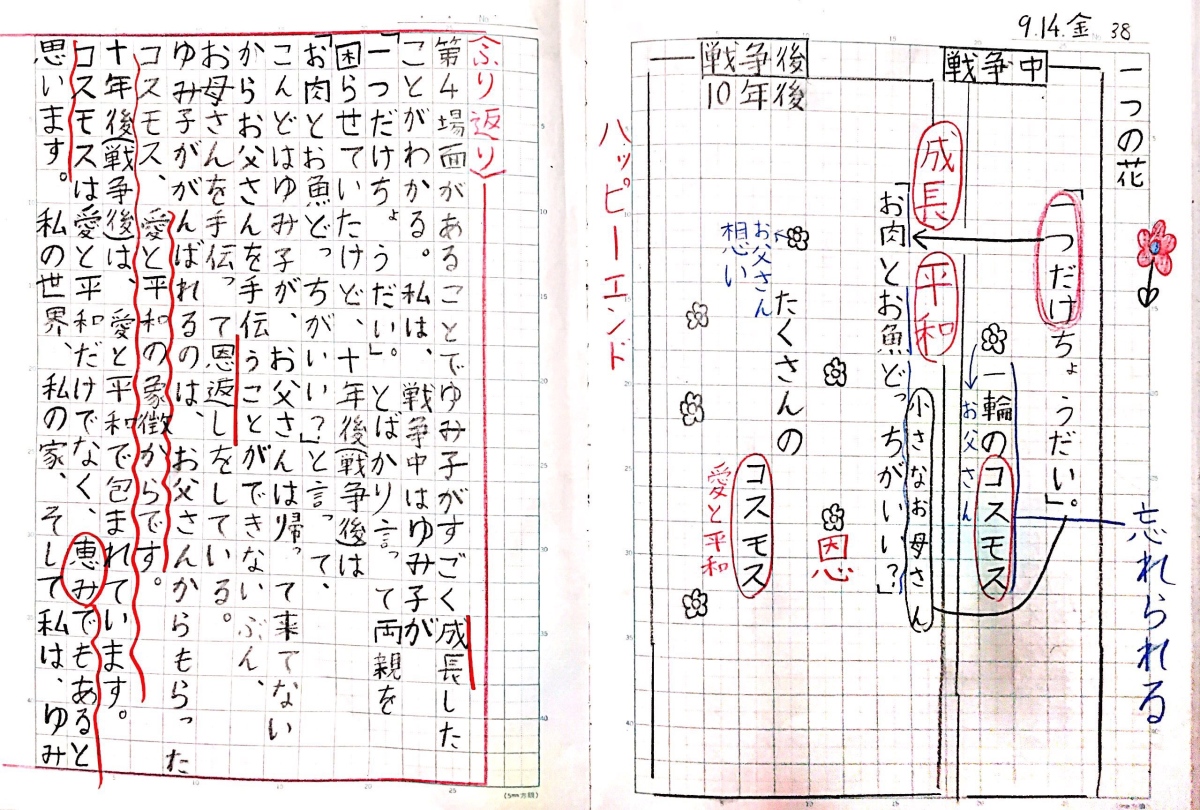 9.14.金 38
一つの花
「一つだけちょうだい」。
忘れられる
戦争中
一輪のコスモス
お父さん
成長
平和
「お肉とお魚どっちがいい?」
小さなお母さん
戦争後
10年後
お父さん
想い
たくさんの
コスモス
愛と平和
恩
ハッピーエンド
(ふり返り)
第4場面があることでゆみ子がすごく成長した
ことがわかる。私は、戦争中はゆみ子が
「一つだけちょうだい」。とばかり言って両親を
困らせていたけど、十年後(戦争後)は
「お肉とお魚どっちがいい?」と言って、
こんどはゆみ子が、お父さんは帰って来てない
からお父さんを手伝うことができないぶん、
お母さんを手伝って恩返しをしている。
ゆみ子ががんばれるのは、お父さんからもらった
コスモス、愛と平和の象徴からです。
十年後(戦争後)は、愛と平和で包まれています。
コスモスは愛と平和だけでなく、恵みでもあると
思います。私の世界、私の家、そして私は、ゆみ
(5mm方眼)